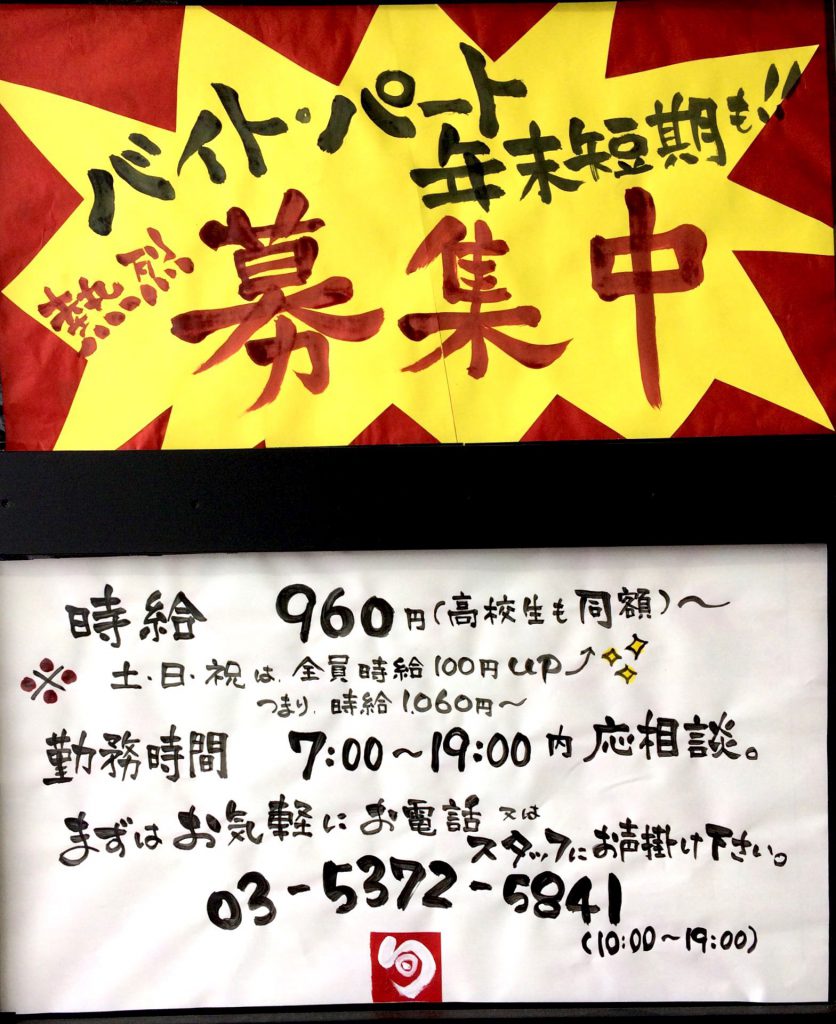 バイト・パート
年末短期も!!
熱烈
募集中
時給 960円(高校生も同額)〜
※ 土・日・祝は、全員時給100円up
つまり、時給1,060円〜
勤務時間 7:00〜19:00内 応相談。
まずは お気軽に お電話 又は
スタッフにお声掛け下さい。
03-5372-5841
(10:00〜19:00)